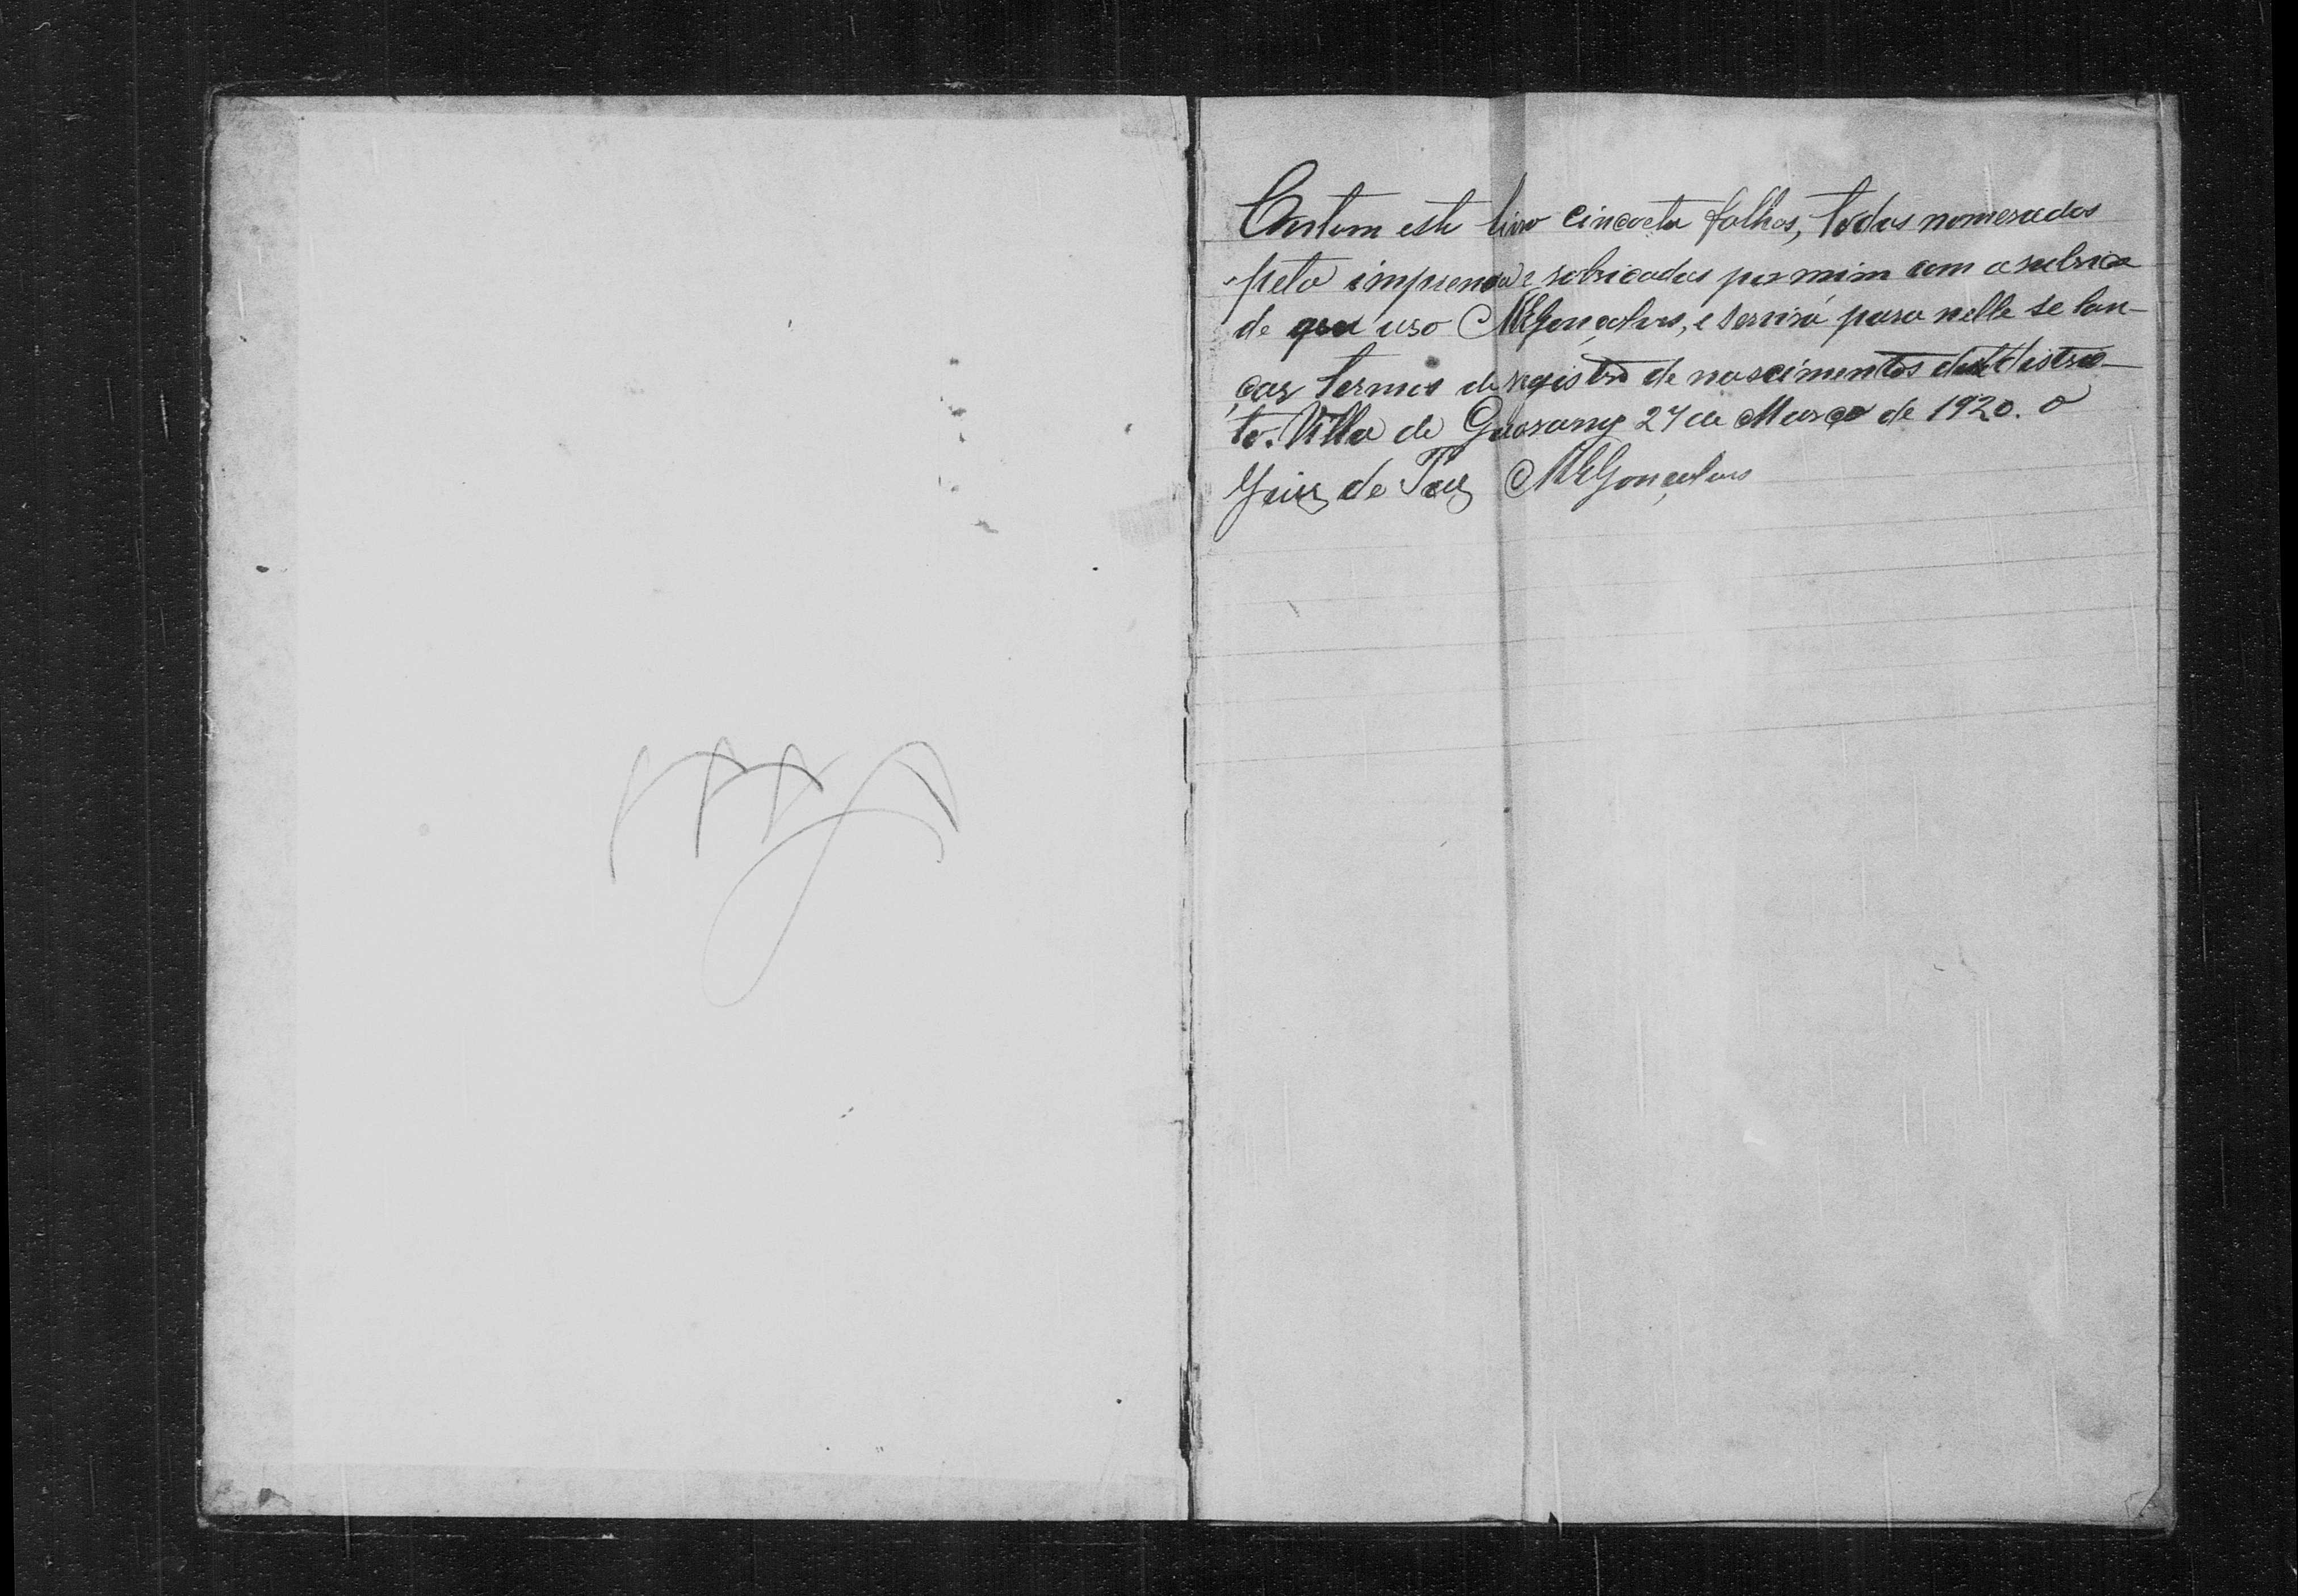 Contem este livro cincoeta folhas, todas nomeradas
pela imprensa e robricadas por mim com a rubrica
de que uso MEGonçalves, e servirá para nelle se lan-
çar termos de registro de nascimentos deste distric-
to. Villa de Guarany 27 de Março de 1920. O
Juiz de Paz MEGonçalves